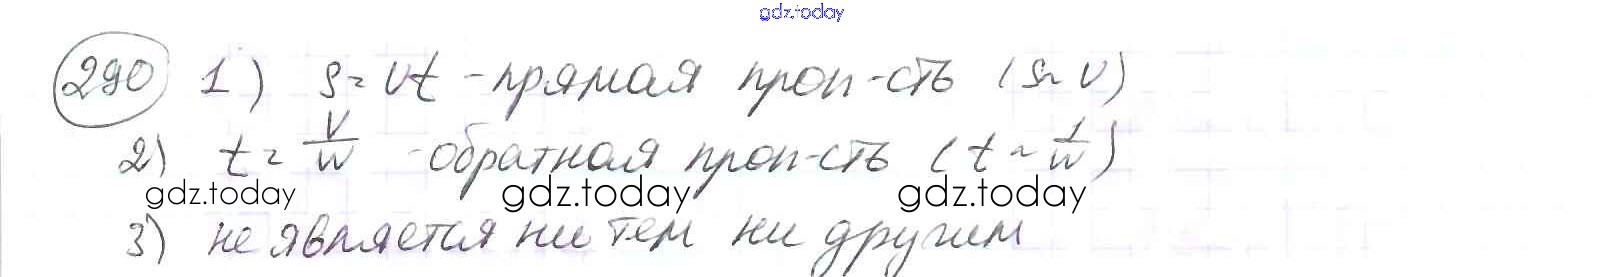 gdz.today
290 1) S = Vt - прямая проп-сть (S ~ V)
2) t = V/W - обратная проп-сть (t ~ 1/W)
gdz.today gdz.today gdz.today
3) не является ни тем ни другим